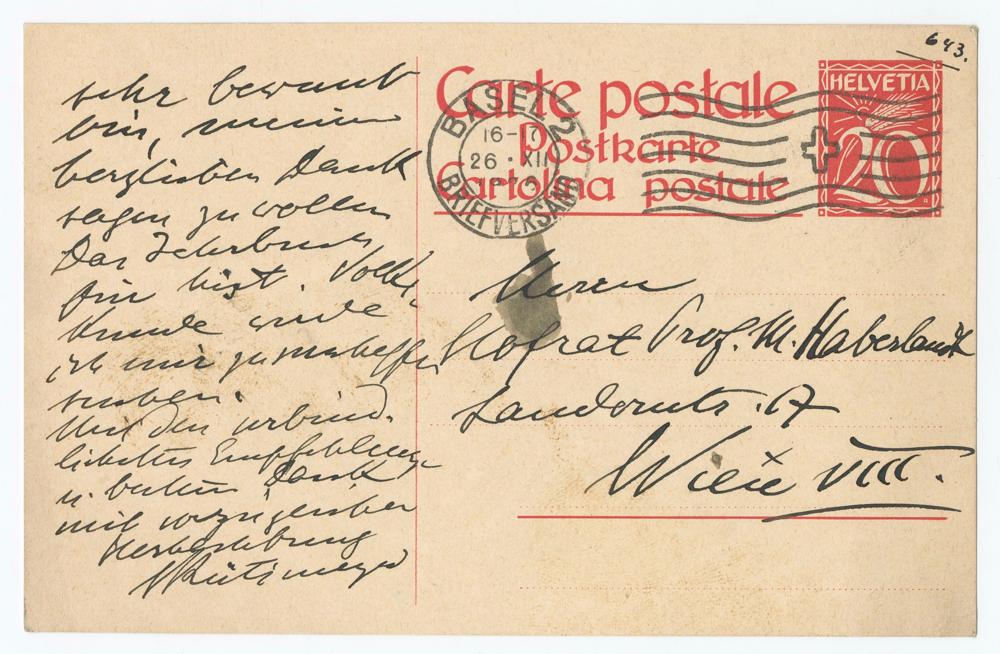 643.
Carte postale
Postkarte
Cartolina postale
HELVETIA
20
BASEL 2
16-17
26 · XII
BRIEFVERSAND
sehr bewandt
bin, meinen
herzlichen Dank
sagen zu wollen
Das Jahrbuch
für hist. Volks-
kunde werde
ich mir zu
suchen.
Mit den verbind-
lichsten Empfehlungen
u. bestem Dank
mit vorzüglicher
Hochachtung
LRütimeyer
Herrn
Hofrat Prof. M. Haberlandt
17
Wien VIII.